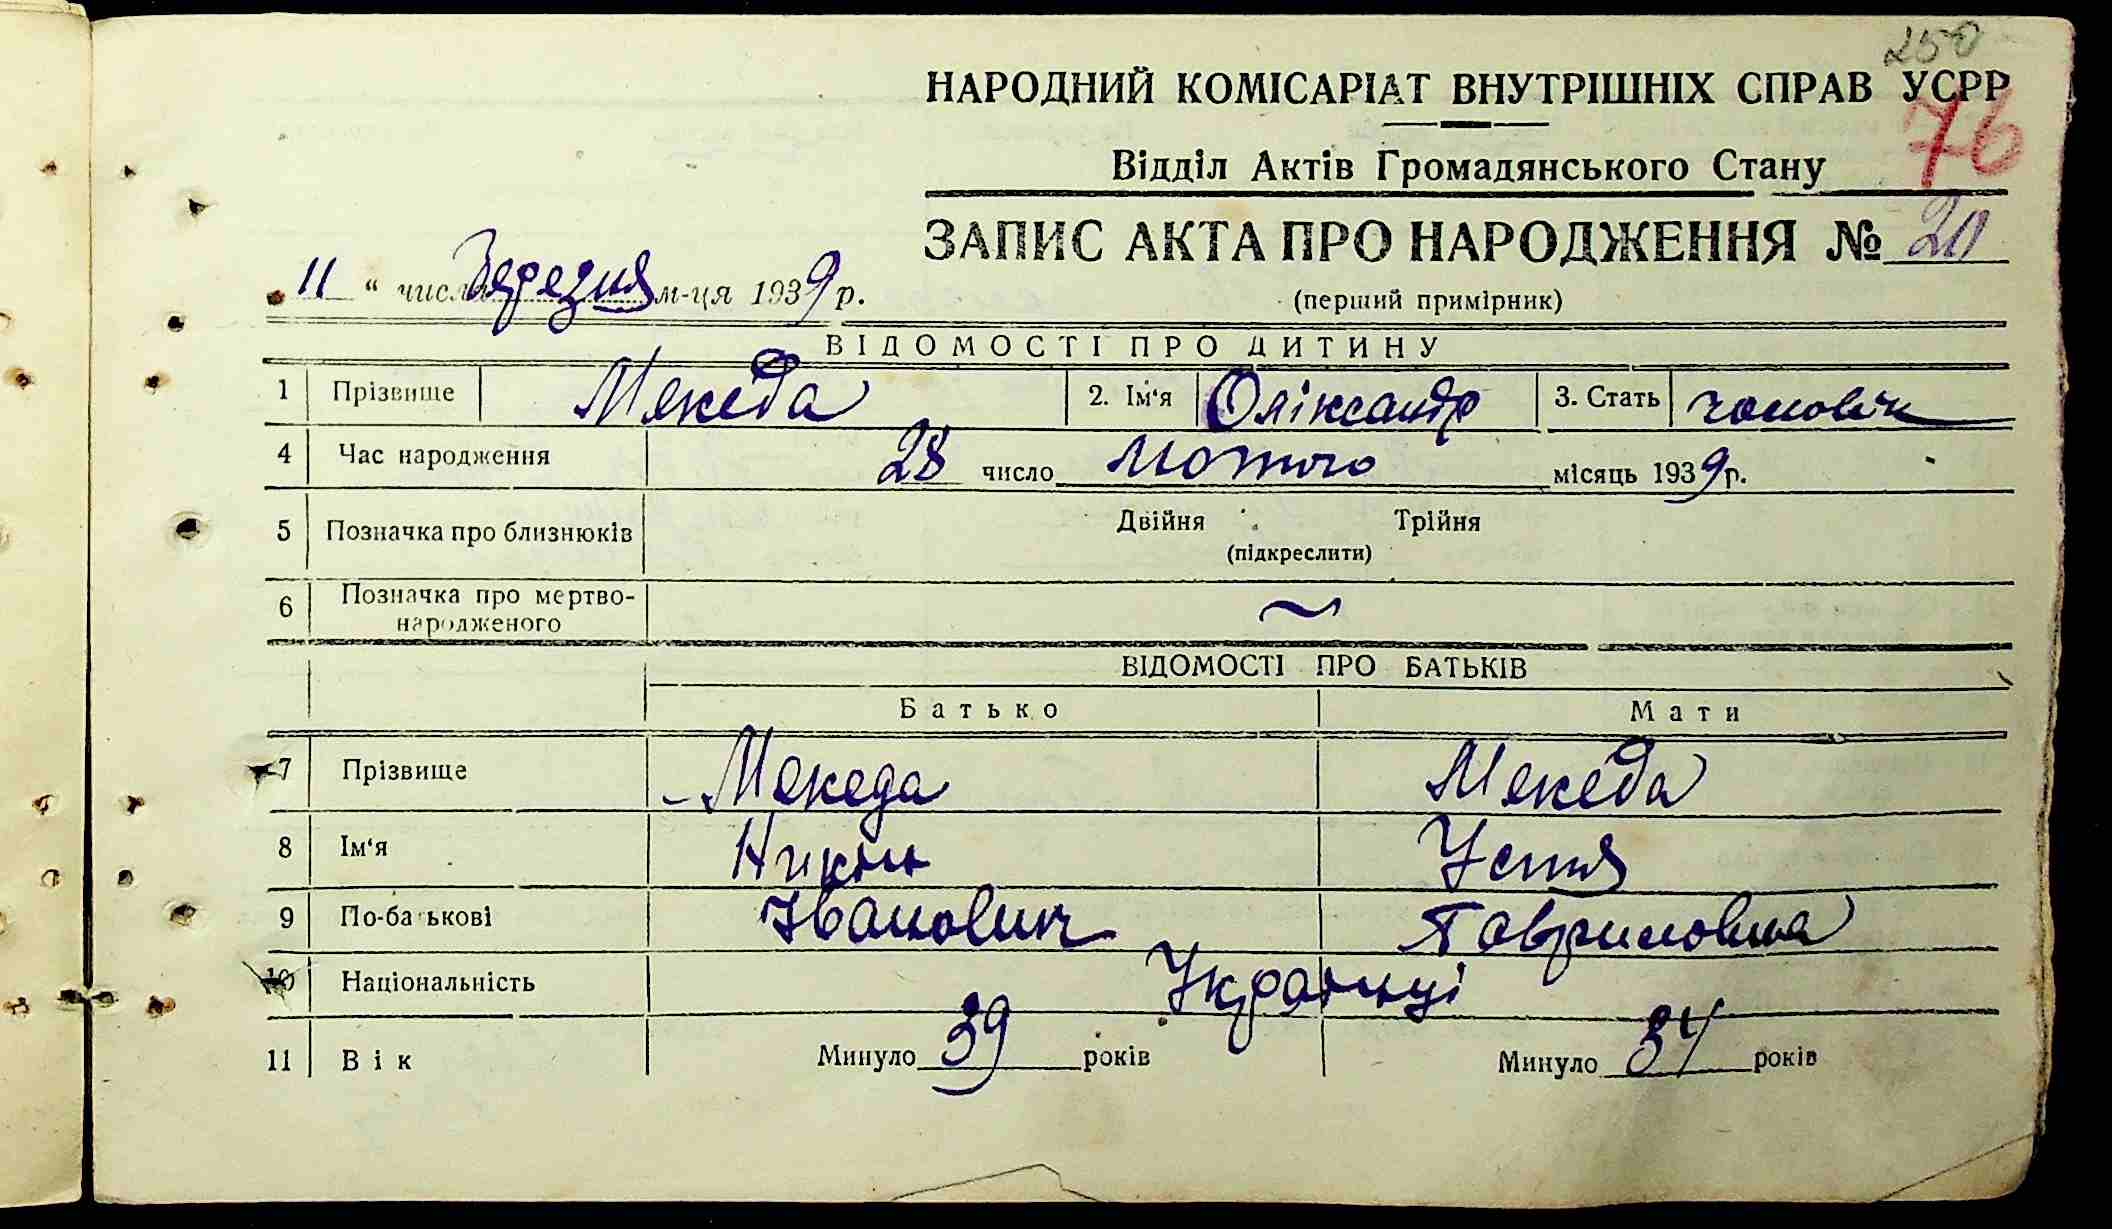 250
НАРОДНИЙ КОМІСАРІАТ ВНУТРІШНІХ СПРАВ УСРР
76
Відділ Актів Громадянського Стану
ЗАПИС АКТА ПРО НАРОДЖЕННЯ № 20
11 “ числа Березня м-ця 1939 р.
(перший примірник)
ВІДОМОСТІ ПРО ДИТИНУ
1 Прізвище Мекеда 2. Ім‘я Оліксандр 3. Стать чоловіч
4 Час народження 28 число Лютого місяць 1939 р.
5 Позначка про близнюків Двійня Трійня
(підкреслити)
6 Позначка про мертво-
народженого
ВІДОМОСТІ ПРО БАТЬКІВ
Батько Мати
7 Прізвище Мекеда Мекеда
8 Ім‘я Устя
9 По-батькові Іванович Гавриловна
10 Національність Українці
11 Вік Минуло 39 років Минуло 34 років